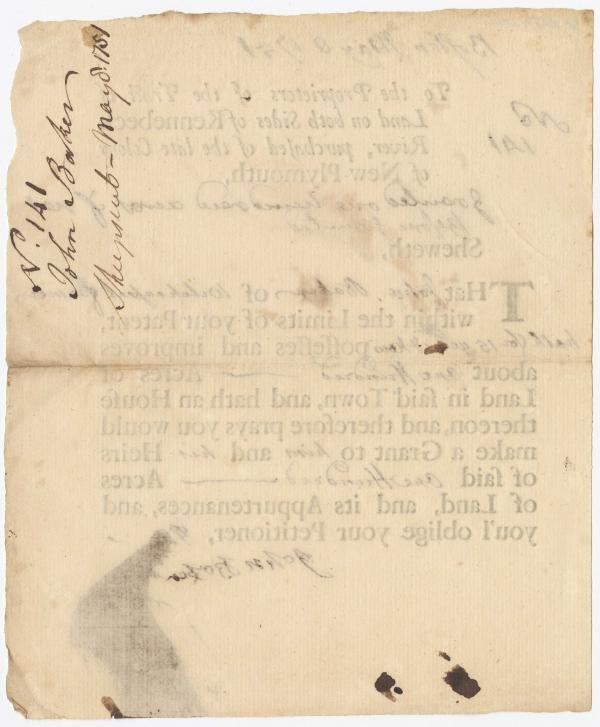 N.º 141
John Baker
Sheepscut - May 8 1751
Boston May 8 1751
No
141
To the Proprietors of the Tract of
Land on both Sides of Kennebeck
River, purchased of the late Colony
of New-Plymouth,
granted one hundred acres if not
before granted
Sheweth,
THat John Baker of
within the Limits of your Patent,
hath for 15 years possesses and improves
about one Hundred Acres of
Land in said Town, and hath an House
thereon, and therefore prays you would
make a Grant to him and his Heirs
of said one Hundred Acres
of Land, and its Appurtenances, and
you'l oblige your Petitioner,
John Baker